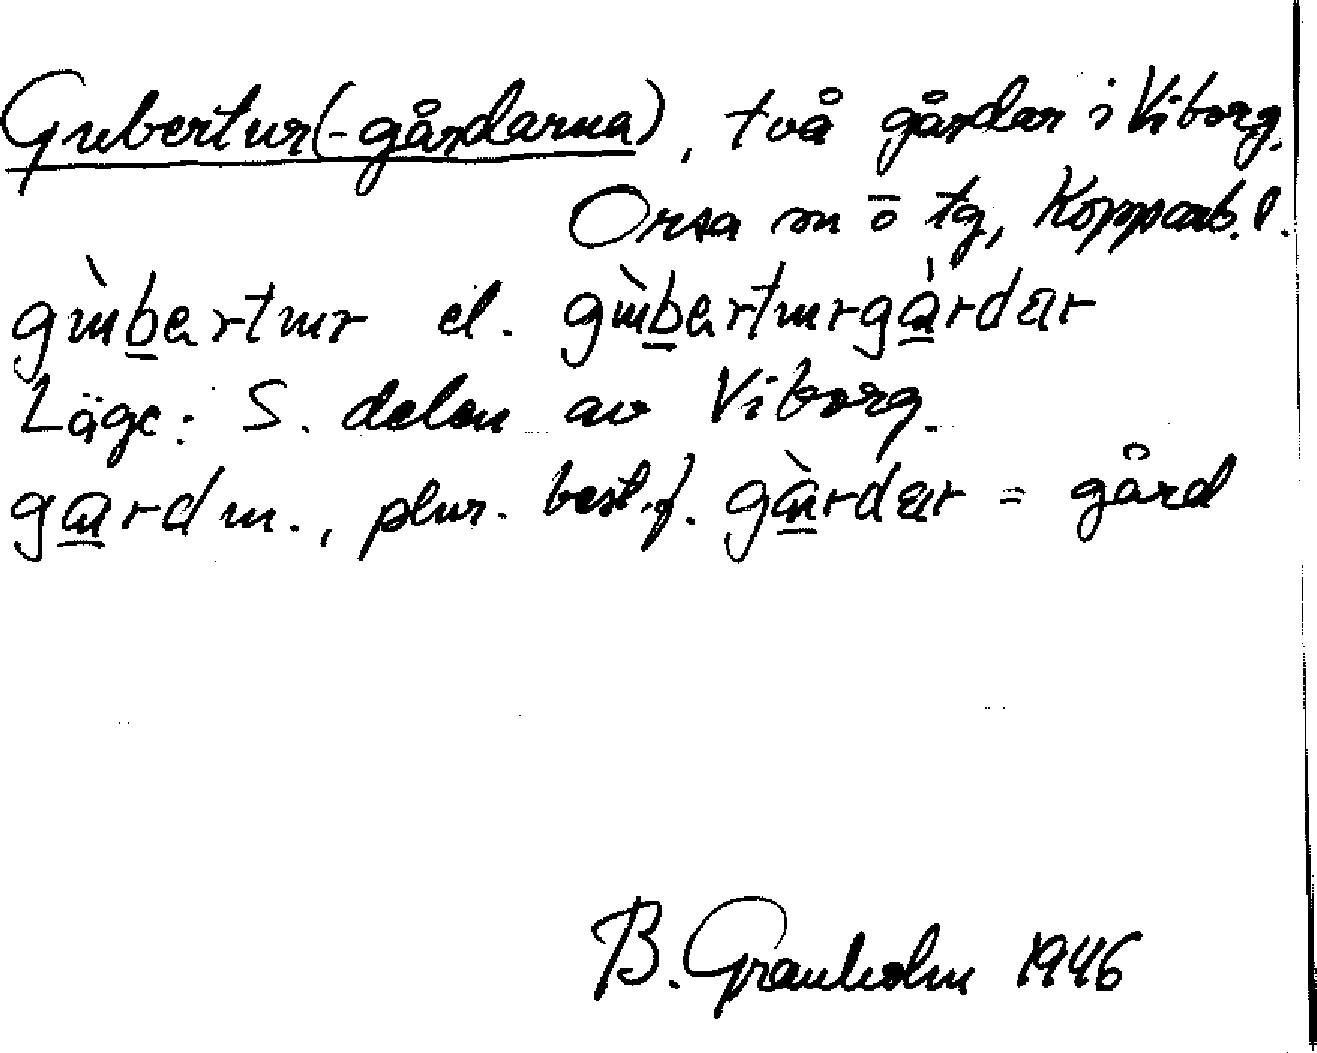 Gubertur(-gårdarna), två gårdar i Viborg,
Orsa sn ö tg, Kopparb. l.
gùbertur el. gùberturgàrdar
Läge: S. delen av Viborg.
gard m., plur. best. f. gàrdar = gård
B. Granholm 1946